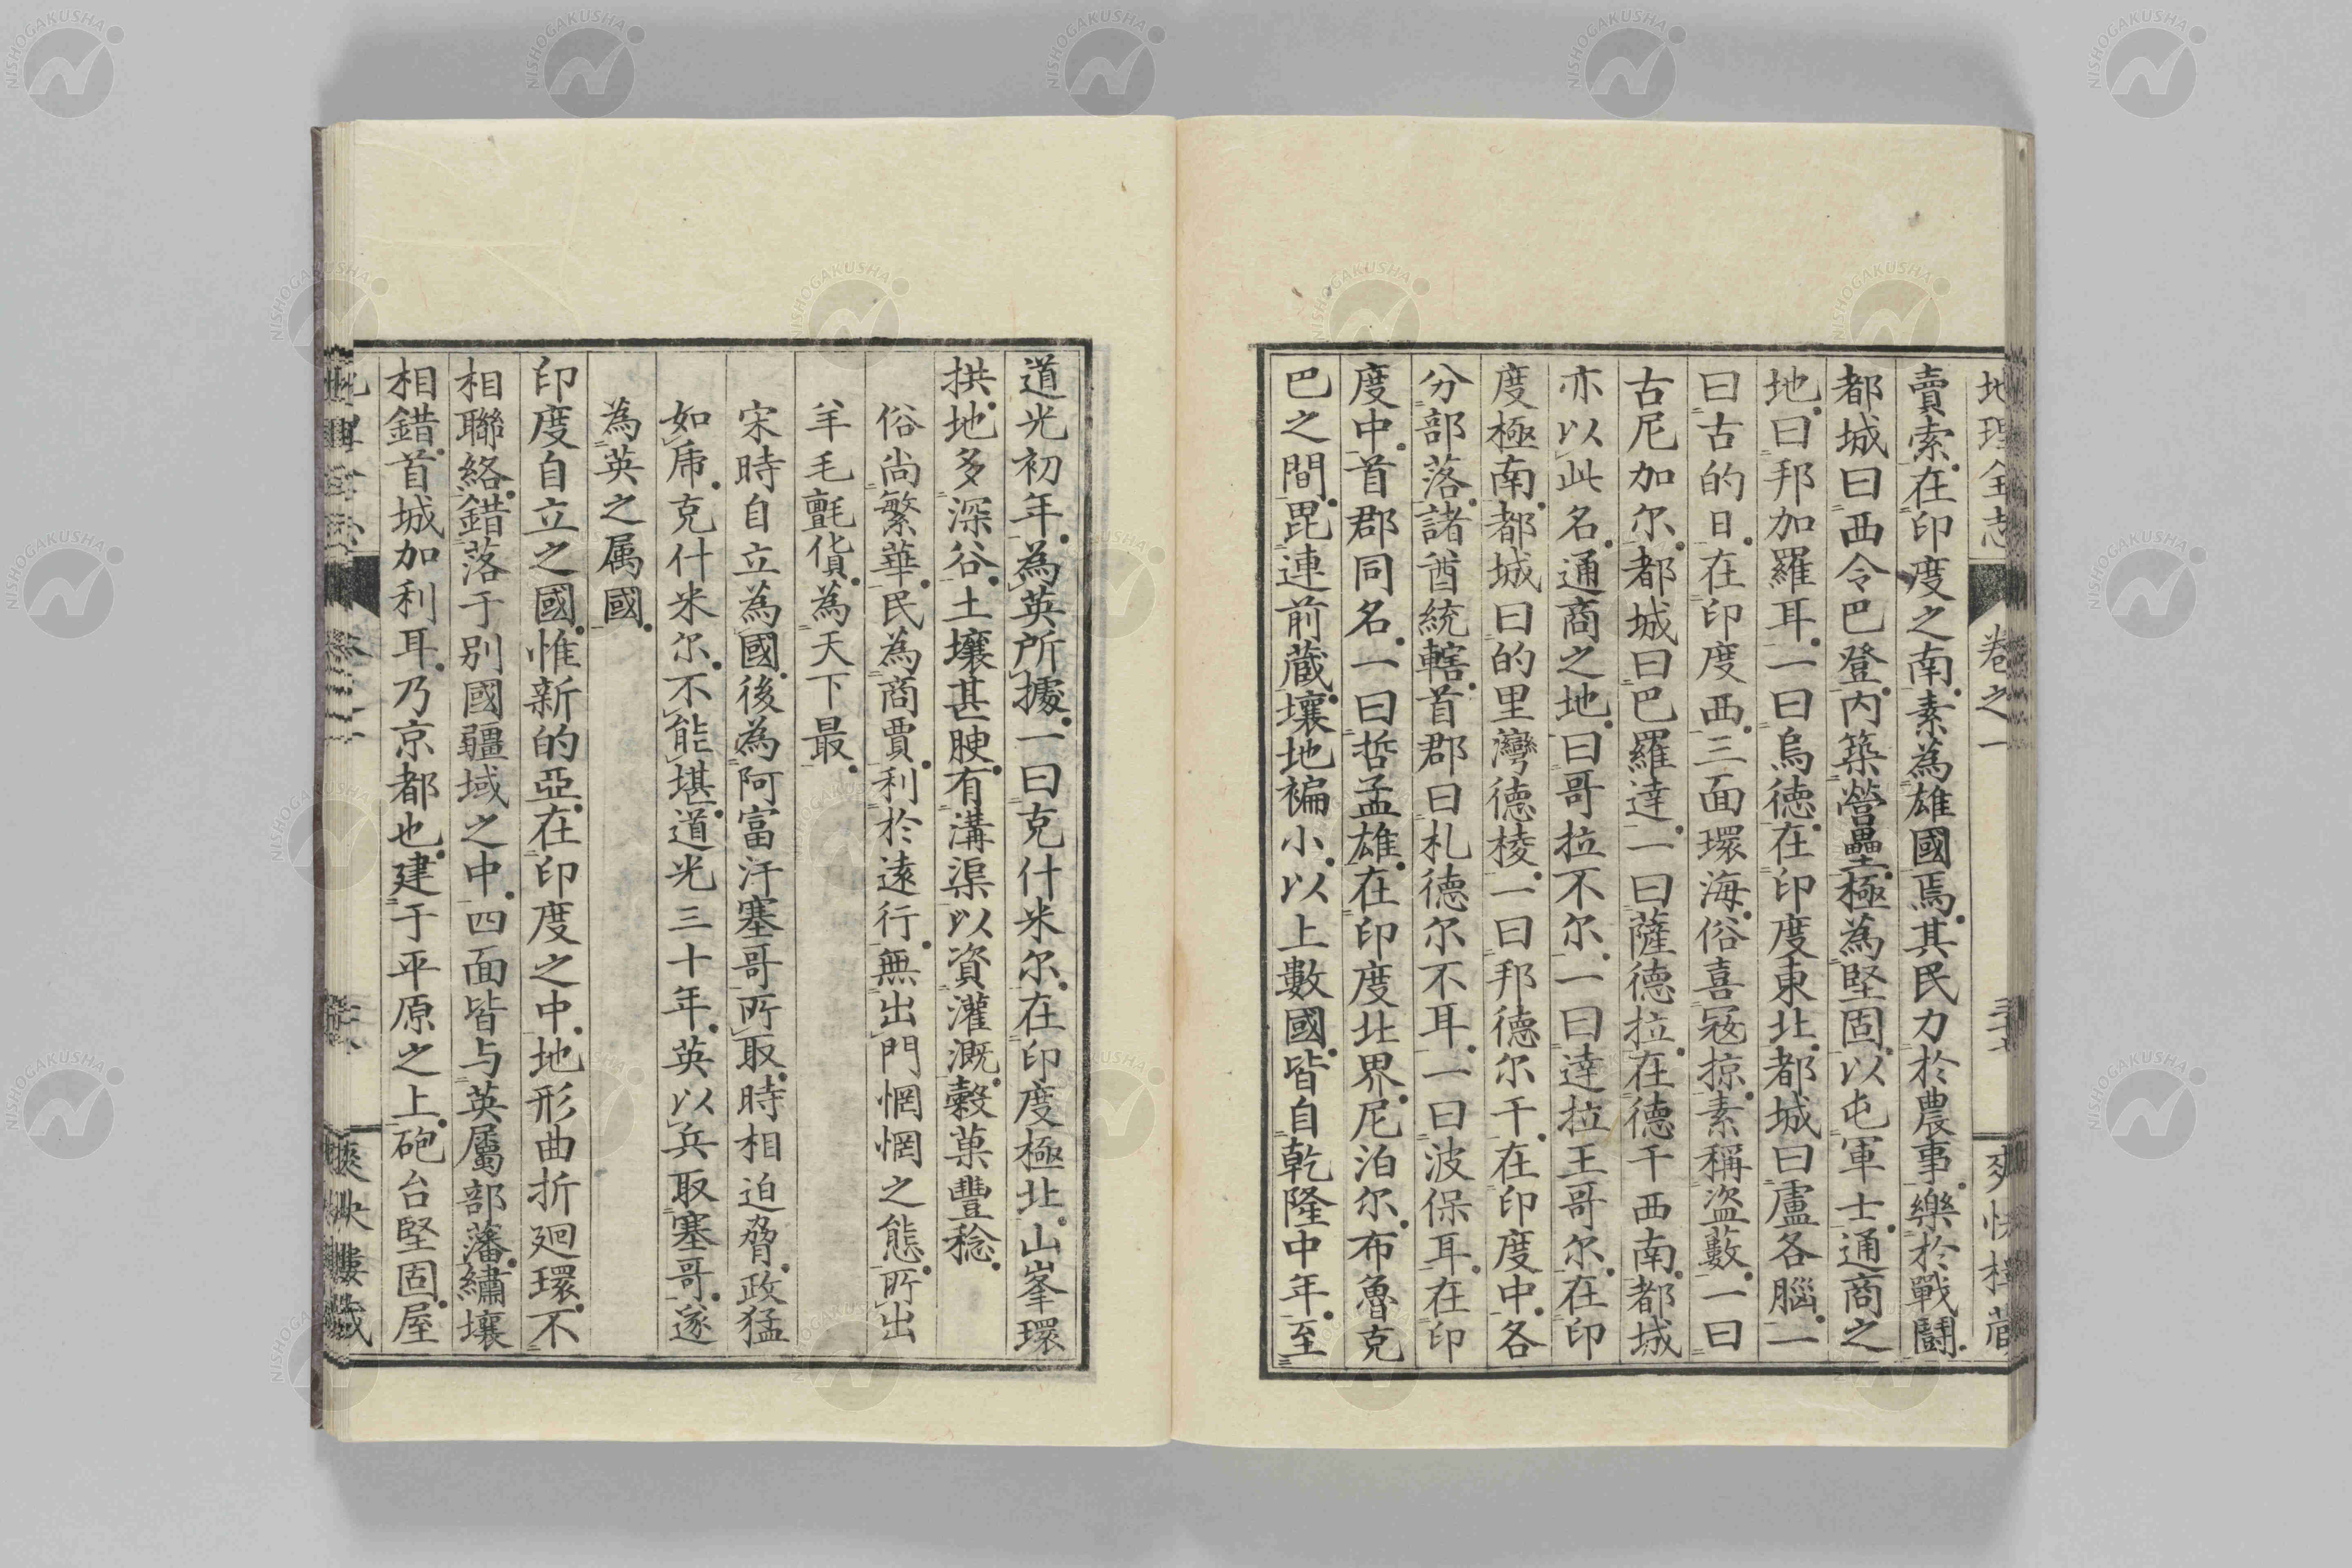 地理全志 卷之一
賣索在印度之南素為雄國焉其民力於農事樂於戰鬪
都城曰西令巴登內築營壘極為堅固以屯軍士通商之
地曰邦加羅耳一曰烏德在印度東北都城曰盧各腦一
曰古的日在印度西三面環海俗喜寇掠素稱盜藪一曰
古尼加尔都城曰巴羅達一曰薩德拉在德干西南都城
亦以此名通商之地曰哥拉不尔一曰達拉王哥尔在印
度極南都城曰的里灣德棱一曰邦德尔干在印度中各
分部落諸酋統轄首郡曰札德尔不耳一曰波保耳在印
度中首郡同名一曰哲孟雄在印度北界尼泊尔布魯克
巴之間毘連前藏壤地褊小以上數國皆自乾隆中年至
道光初年為英所據一曰克什米尔在印度極北山峯環
拱地多深谷土壤甚腴有溝渠以資灌溉穀菓豐稔
俗尚繁華民為商賈利於遠行無出門惘惘之態所出
羊毛氈貨為天下最
宋時自立為國後為阿富汗塞哥所取時相迫脅政猛
如虎克什米尔不能堪道光三十年英以兵取塞哥遂
為英之属國
印度自立之國惟新的亞在印度之中地形曲折廻環不
相聯絡錯落于別國疆域之中四面皆与英屬部藩繡壤
相錯首城加利耳乃京都也建于平原之上砲台堅固屋